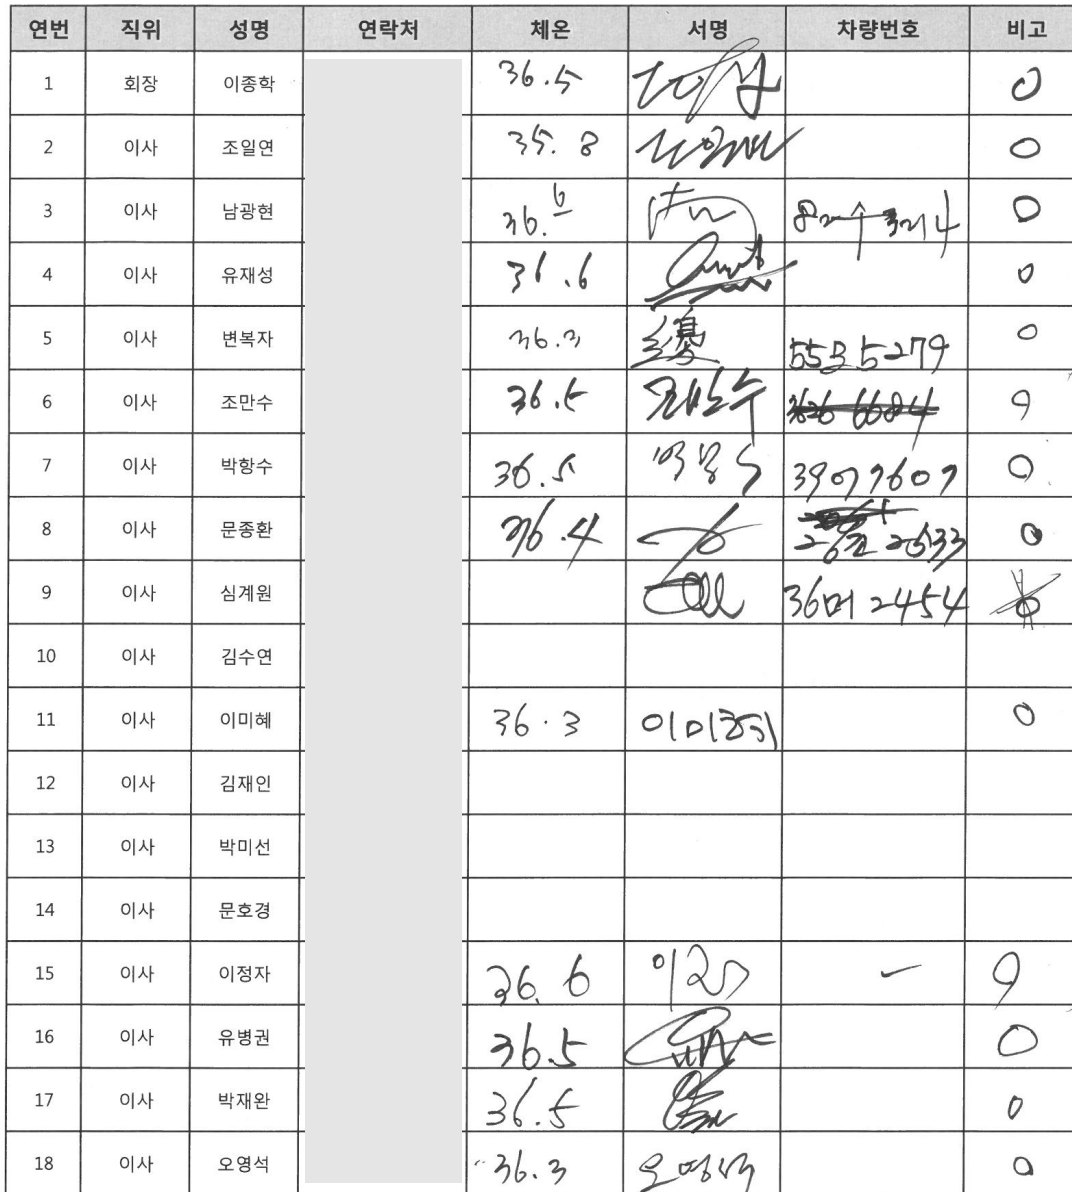 연번 직위 성명 연락처 체온 서명 차량번호 비고
1 회장 이종학 36.5 O
2 이사 조일연 35.8 O
3 이사 남광현 36.6 O
4 이사 유재성 36.6 O
5 이사 변복자 36.3 5279 O
6 이사 조만수 36.5 조만수 O
7 이사 박항수 36.5 7607 O
8 이사 문종환 36.4 O
9 이사 심계원 36머 2454
10 이사 김수연
11 이사 이미혜 36.3 이미혜 O
12 이사 김재인
13 이사 박미선
14 이사 문호경
15 이사 이정자 36.6 - O
16 이사 유병권 36.5 O
17 이사 박재완 36.5 O
18 이사 오영석 36.3 오영석 O